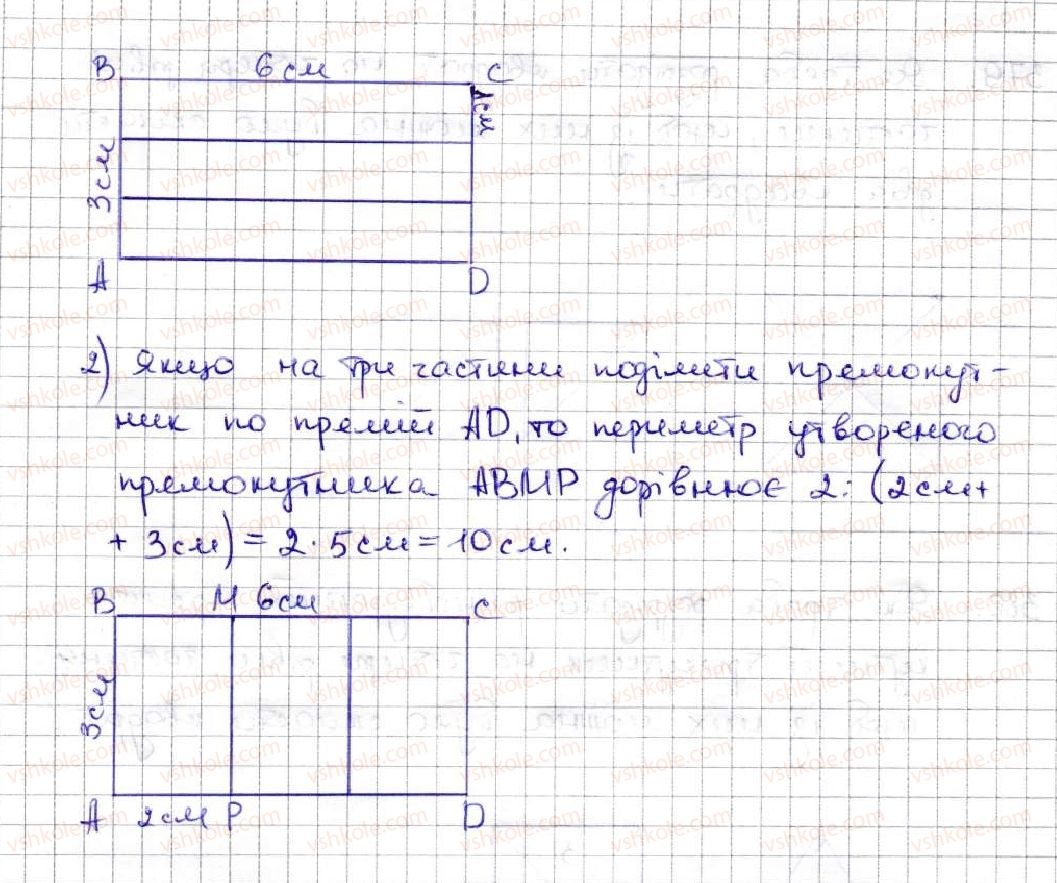 B 6см C
1см
3см
A D
2) Якщо на три частини поділити прямокут-
ник по прямій AD, то периметр утвореного
прямокутника ABMP дорівнює 2·(2см+
+ 3см) = 2·5см = 10см.
B M 6см C
3см
A 2см P D
vshkole.com